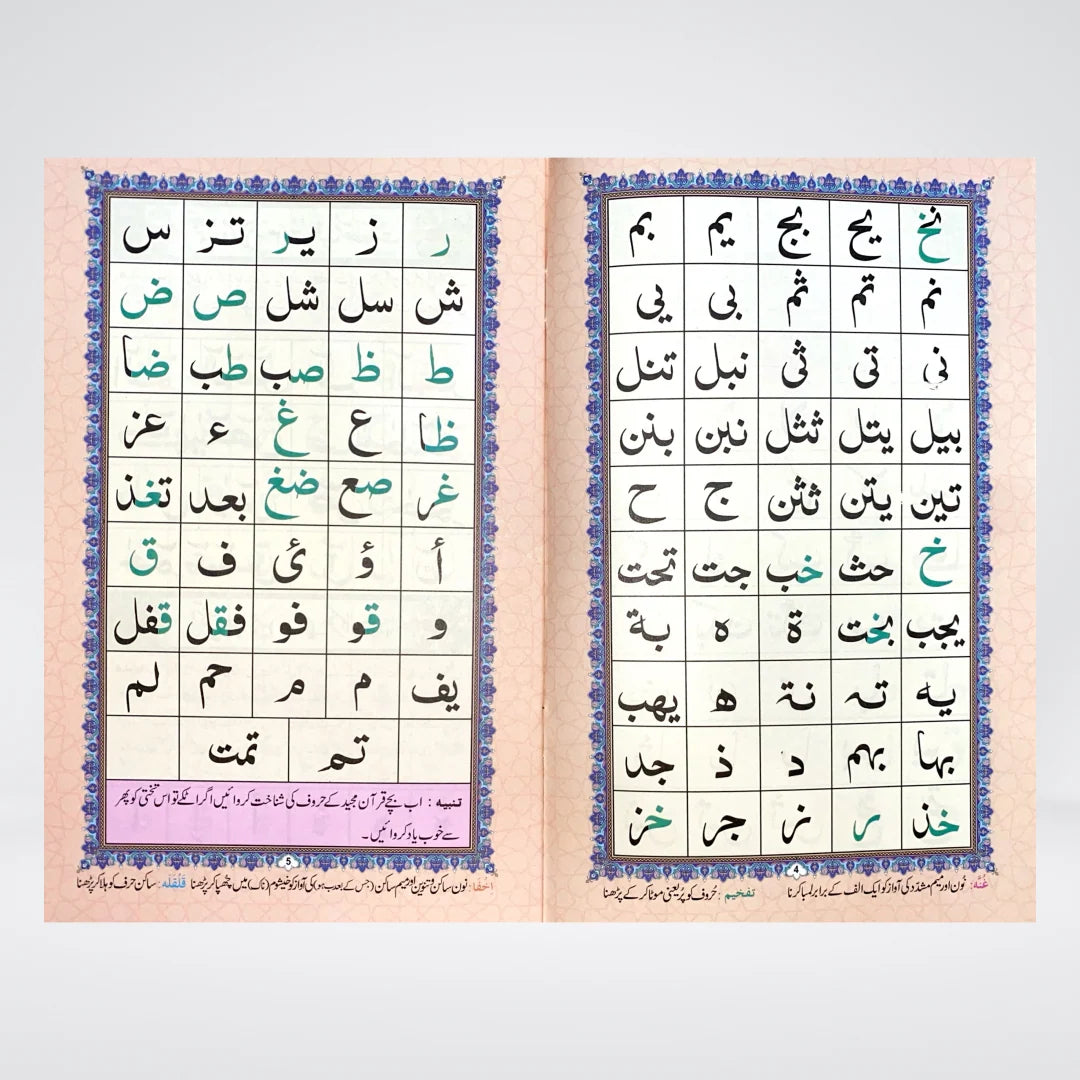 نخ یح بج یم بم
نم تم ثم بی یی
نی تی ثی نبل تنل
بیل یتل ثثل نبن بنن
تین یتن ثثن ج ح
خ حث خب جت تحت
یجب بخت ة ه بة
یه تہ نة ھ یھب
بہا بہم د ذ جد
خذ ر نر جر خز
4
غُنَّہ: نُون اور میم مشدّد کی آواز کو ایک الف کے برابر لمبا کرنا
تفخیم: حُروف کو پُر یعنی موٹا کر کے پڑھنا
ر ز یر تز س
ش سل شل ص ض
ط ظ صب طب ضا
ظا ع غ ء عز
غر صع ضغ بعد تغذ
أ ؤ ئ ف ق
و قو فو فقل قفل
یف م م حم لم
تم تمت
تنبیہ: اب بچے قرآن مجید کے حروف کی شناخت کروائیں اگر اٹکے تو اس تختی کو پھر
سے خوب یاد کروائیں۔
5
اِخفا: نُون ساکن و تنوین اور میم ساکن (جس کے بعد ب ہو) کی آواز کو خیشوم (ناک) میں چھپا کر پڑھنا قلقلہ: ساکن حرف کو ہلا کر پڑھنا